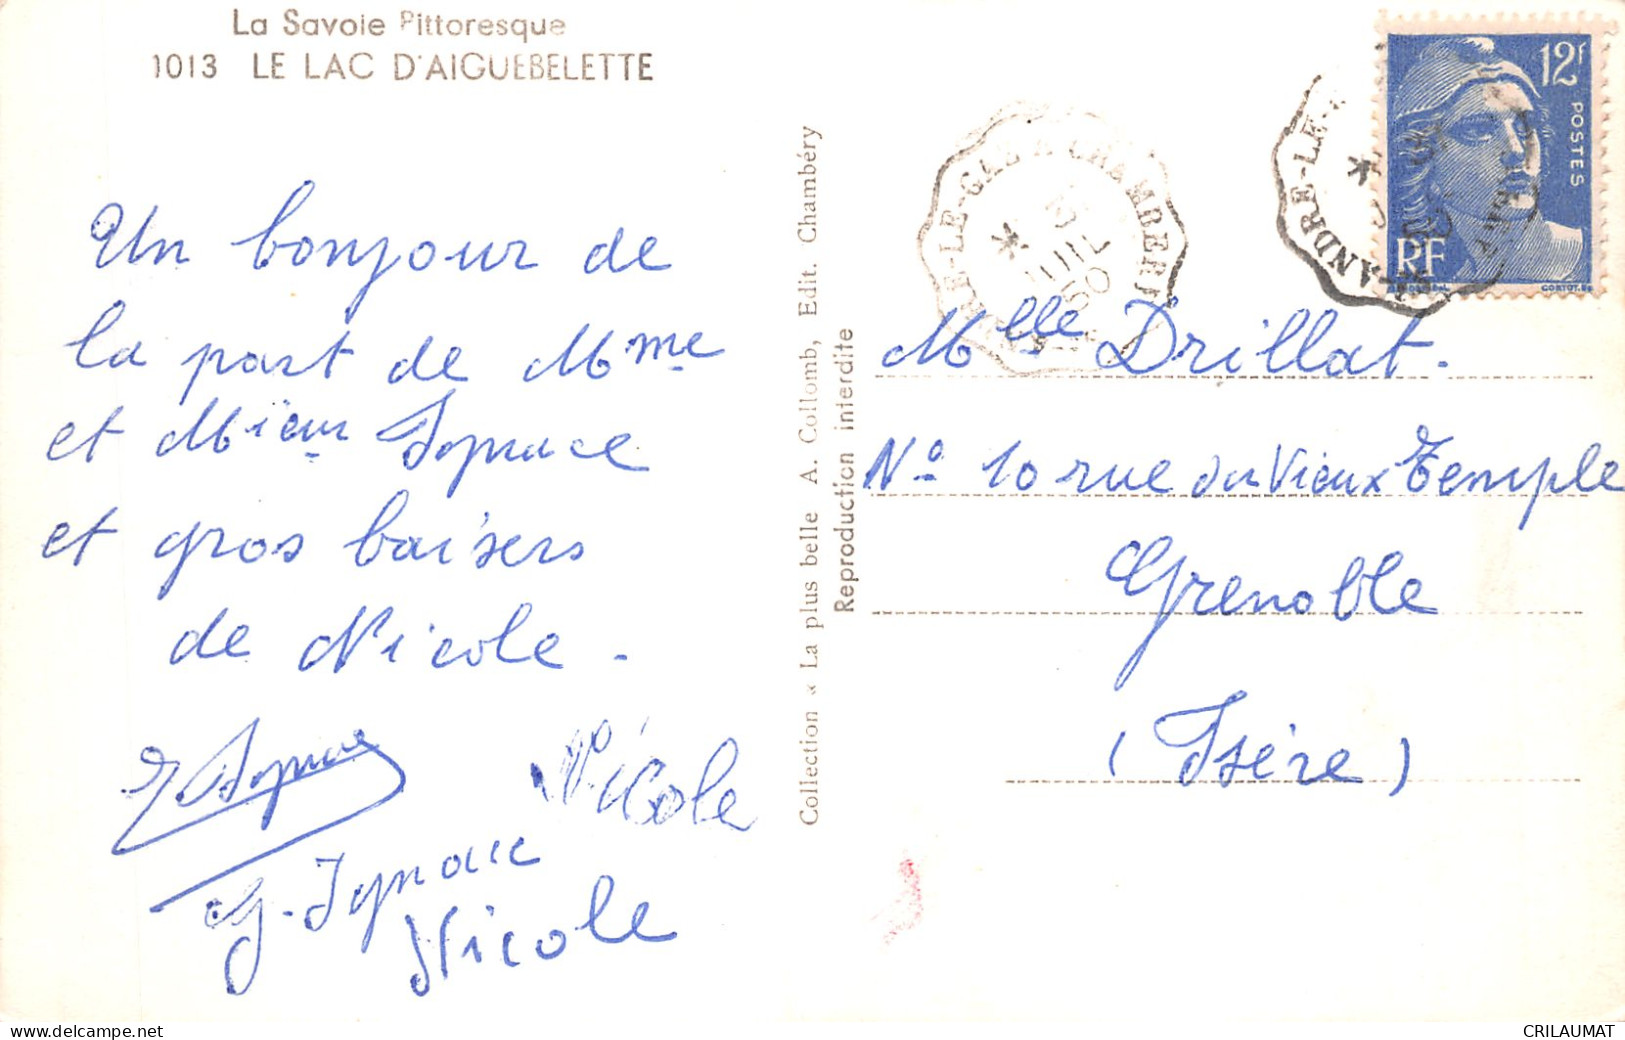 La Savoie Pittoresque
1013 LE LAC D'AIGUEBELETTE
Un bonjour de
la part de Mme
et Mieur Ignace
et gros baisers
de Nicole.
Ignace
Nicole
G. Ignace
Nicole
Collection « La plus belle A. Collomb, Edit. Chambéry
Reproduction interdite
12F
POSTES
RF
ANDRE-LE-
LE-GAZ A CHAMBERY
JUIL
50
Mlle Drillat.
N° 10 rue du Vieux Temple
Grenoble
(Isère)
CRILAUMAT
www.delcampe.net